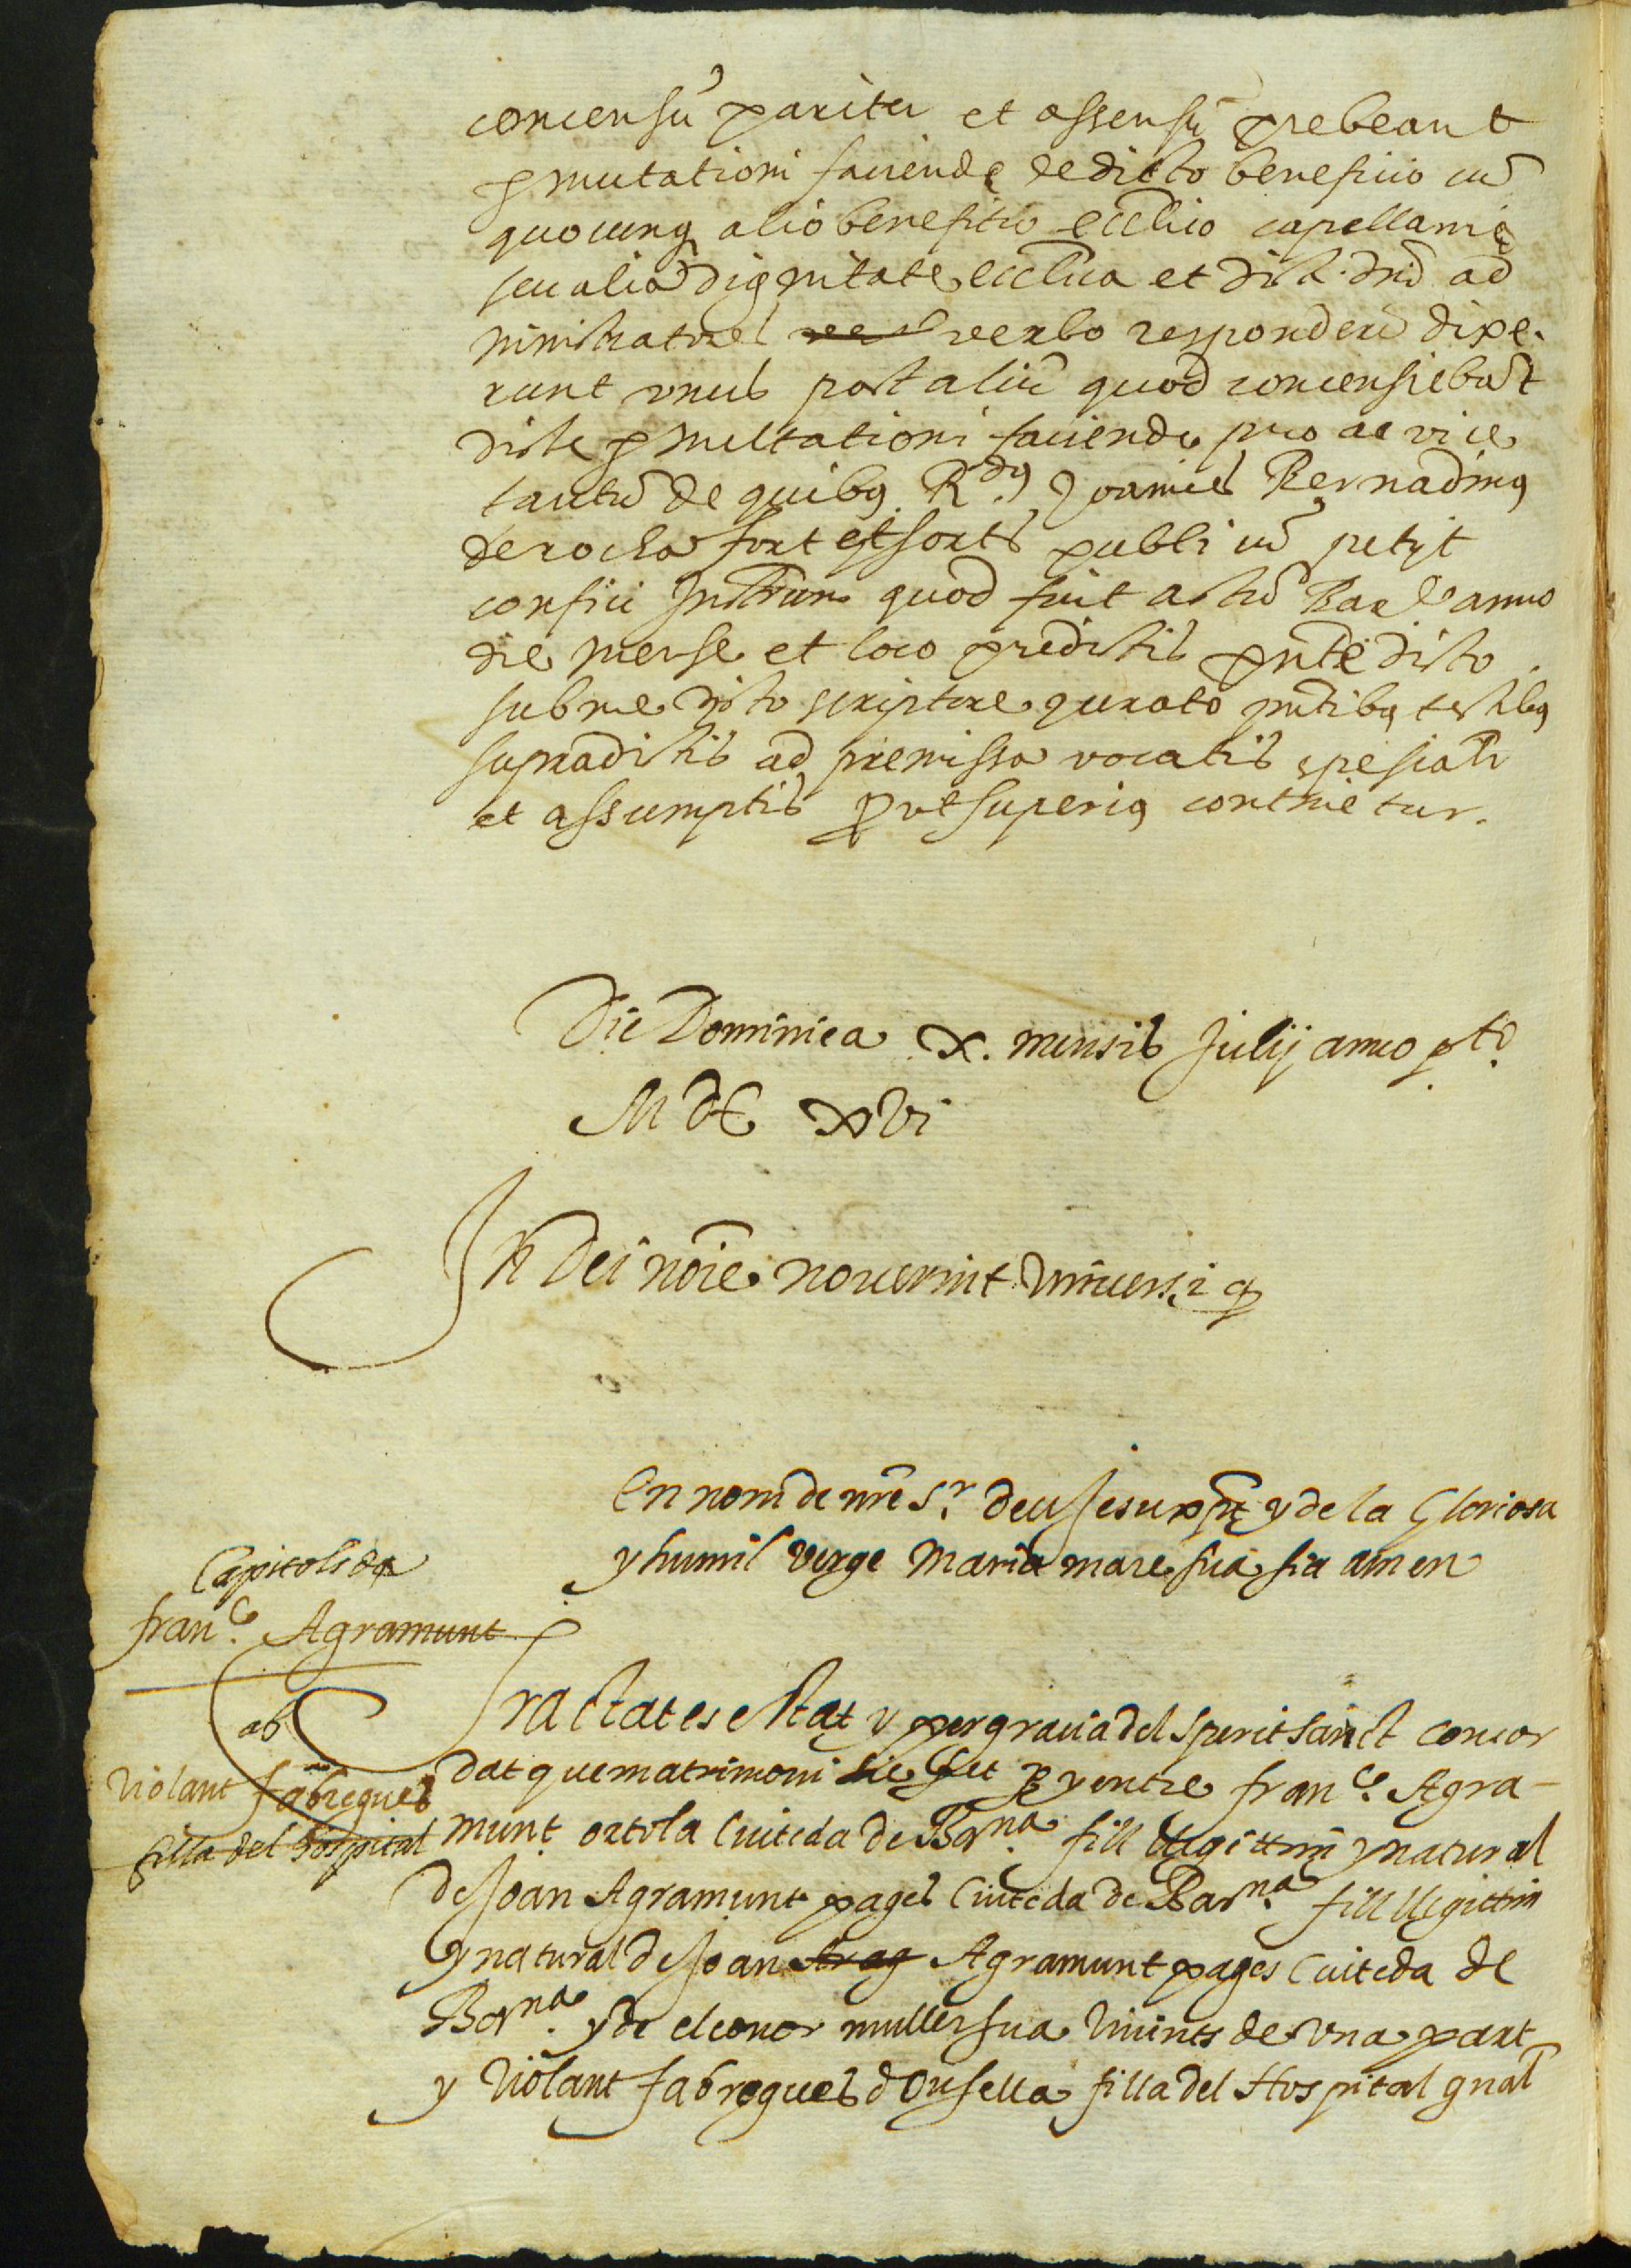 concensũ pariter et assensũ prebeant
p̱mutationi faciende de dicto beneficio cũ
quocunq̨ alio benefitio eccl̃co capellania
seu alia dignitate eccl̃ica et dict. dñi ad
ministratores verbo respondendo dixe-
runt unus post aliũ quod concensiebãt
dicte p̱multationi faciende pro ac vice
tantũ de quibȝ R.dus Joannes Bernadinȝ
de rocha fort et sorts publicũ petijt
confici Instrum quod fuit actũ Bar.e anno
die mense et loco predictis pñte dicto
sub me dicto scriptore jurato pñtibȝ testibȝ
supradictis ad premissa vocatis spesialr̃
et assumptis prout superiȝ continetur.
Die Dominica x. mensis Julij anno p.to
M dC xvi
In Dei nõie noverint universi q̱
En nom de nr̃e S.r deu Jesu xp̃t y de la Gloriosa
y humil verge Maria mare sua sia amen
Capitols de
fran.co Agramunt
ab
Violant fabregues
filla del Hospital
Tractat es estat y per gracia del Sperit sanct concor
dat que matrimoni sie fet p̱ y entre fran.co Agra-
munt ortola Ciuteda de Bar.na fill llegittim y natural
de Joan Agramunt pages Ciuteda de Bar.na fill llegittim
y natural de Joan Arag Agramunt pages Ciuteda de
Bar.na y de eleonor muller sua vivints de una part
y Violant fabregues d Orsella filla del Hospital gñal